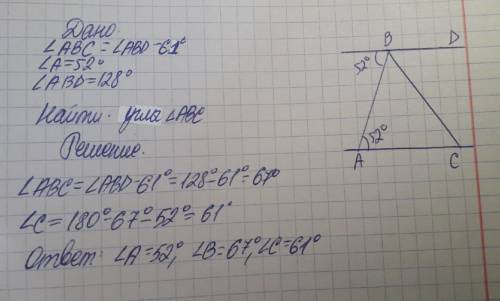 Дано.
∠ABC = ∠ABD-61°
∠A=52°
∠ABD=128°
Найти. угла ∠ABC
Решение.
∠ABC=∠ABD-61°=128°-61°=67°
∠C=180°-67°-52°=61°
Ответ: ∠A=52°, ∠B=67°, ∠C=61°
B D
52°
52°
A C